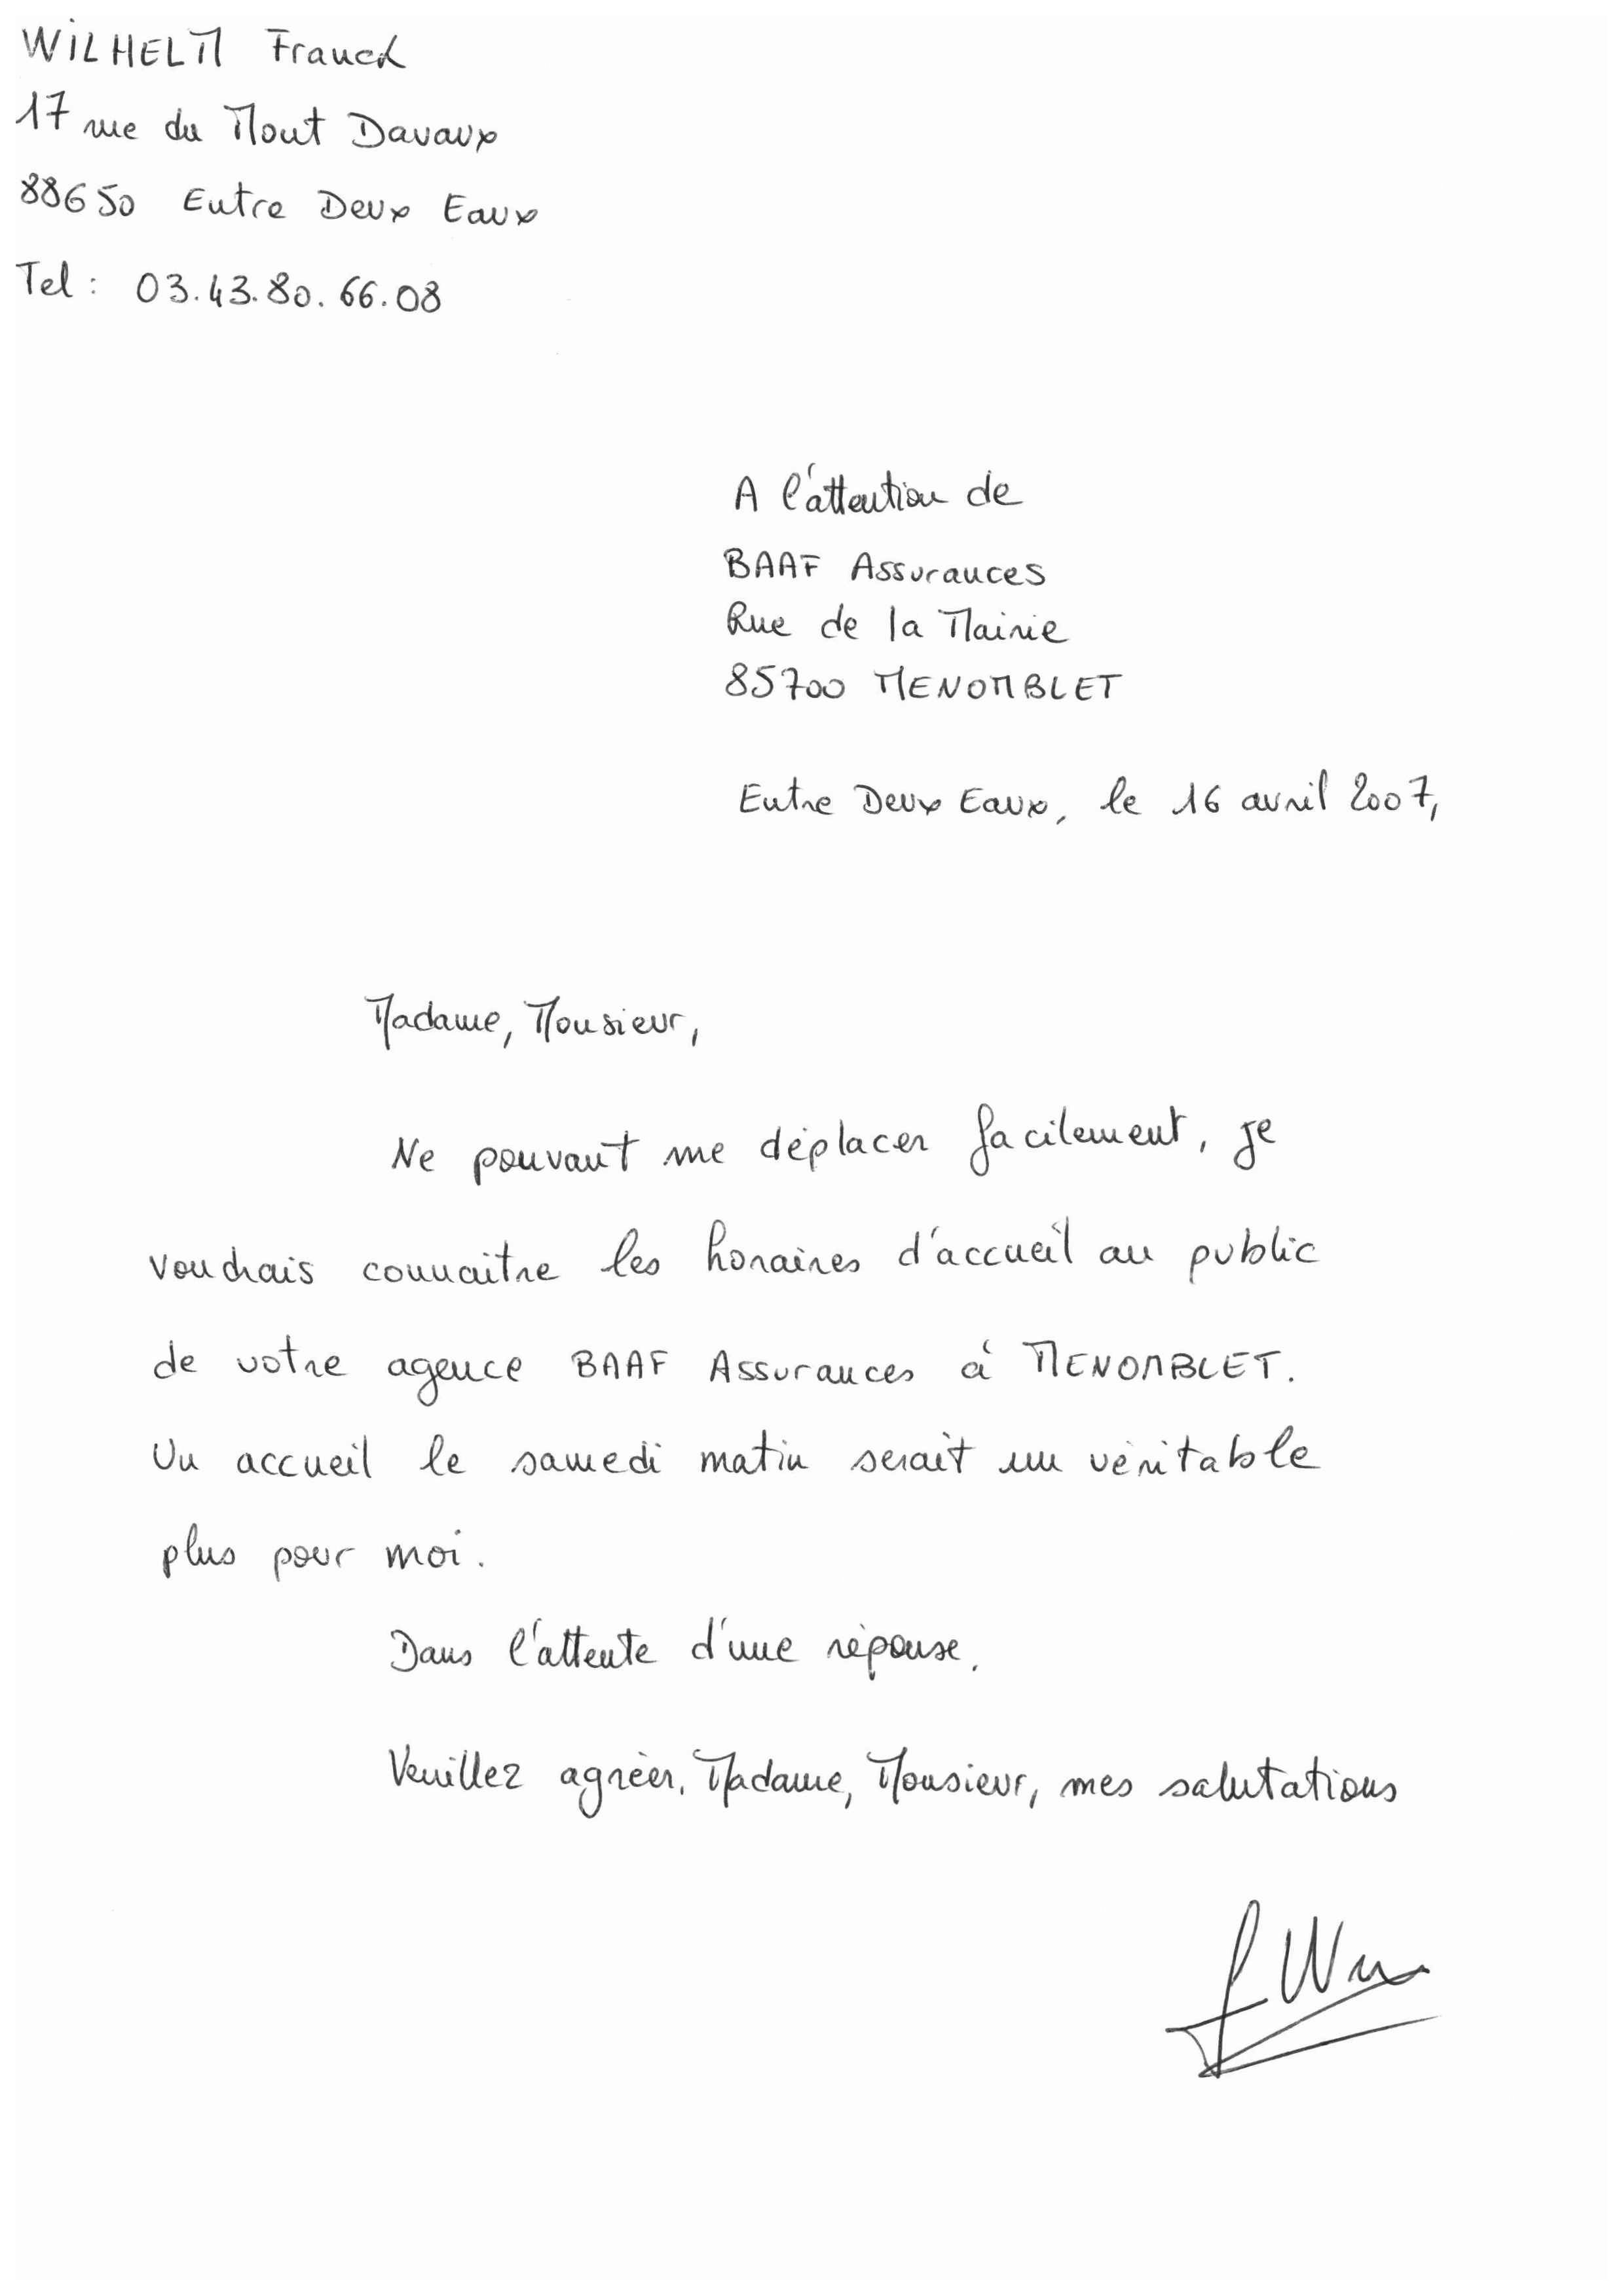 WILHELM Franck
17 rue du Mont Davaux
88650 Entre Deux Eaux
Tel : 03.43.80.66.08
A l'attention de
BAAF Assurances
Rue de la Mairie
85700 MENOMBLET
Entre Deux Eaux, le 16 avril 2007,
Madame, Monsieur,
Ne pouvant me déplacer facilement, je
voudrais connaitre les horaires d'accueil au public
de votre agence BAAF Assurances à MENOMBLET.
Un accueil le samedi matin serait un véritable
plus pour moi.
Dans l'attente d'une réponse.
Veuillez agréer, Madame, Monsieur, mes salutations